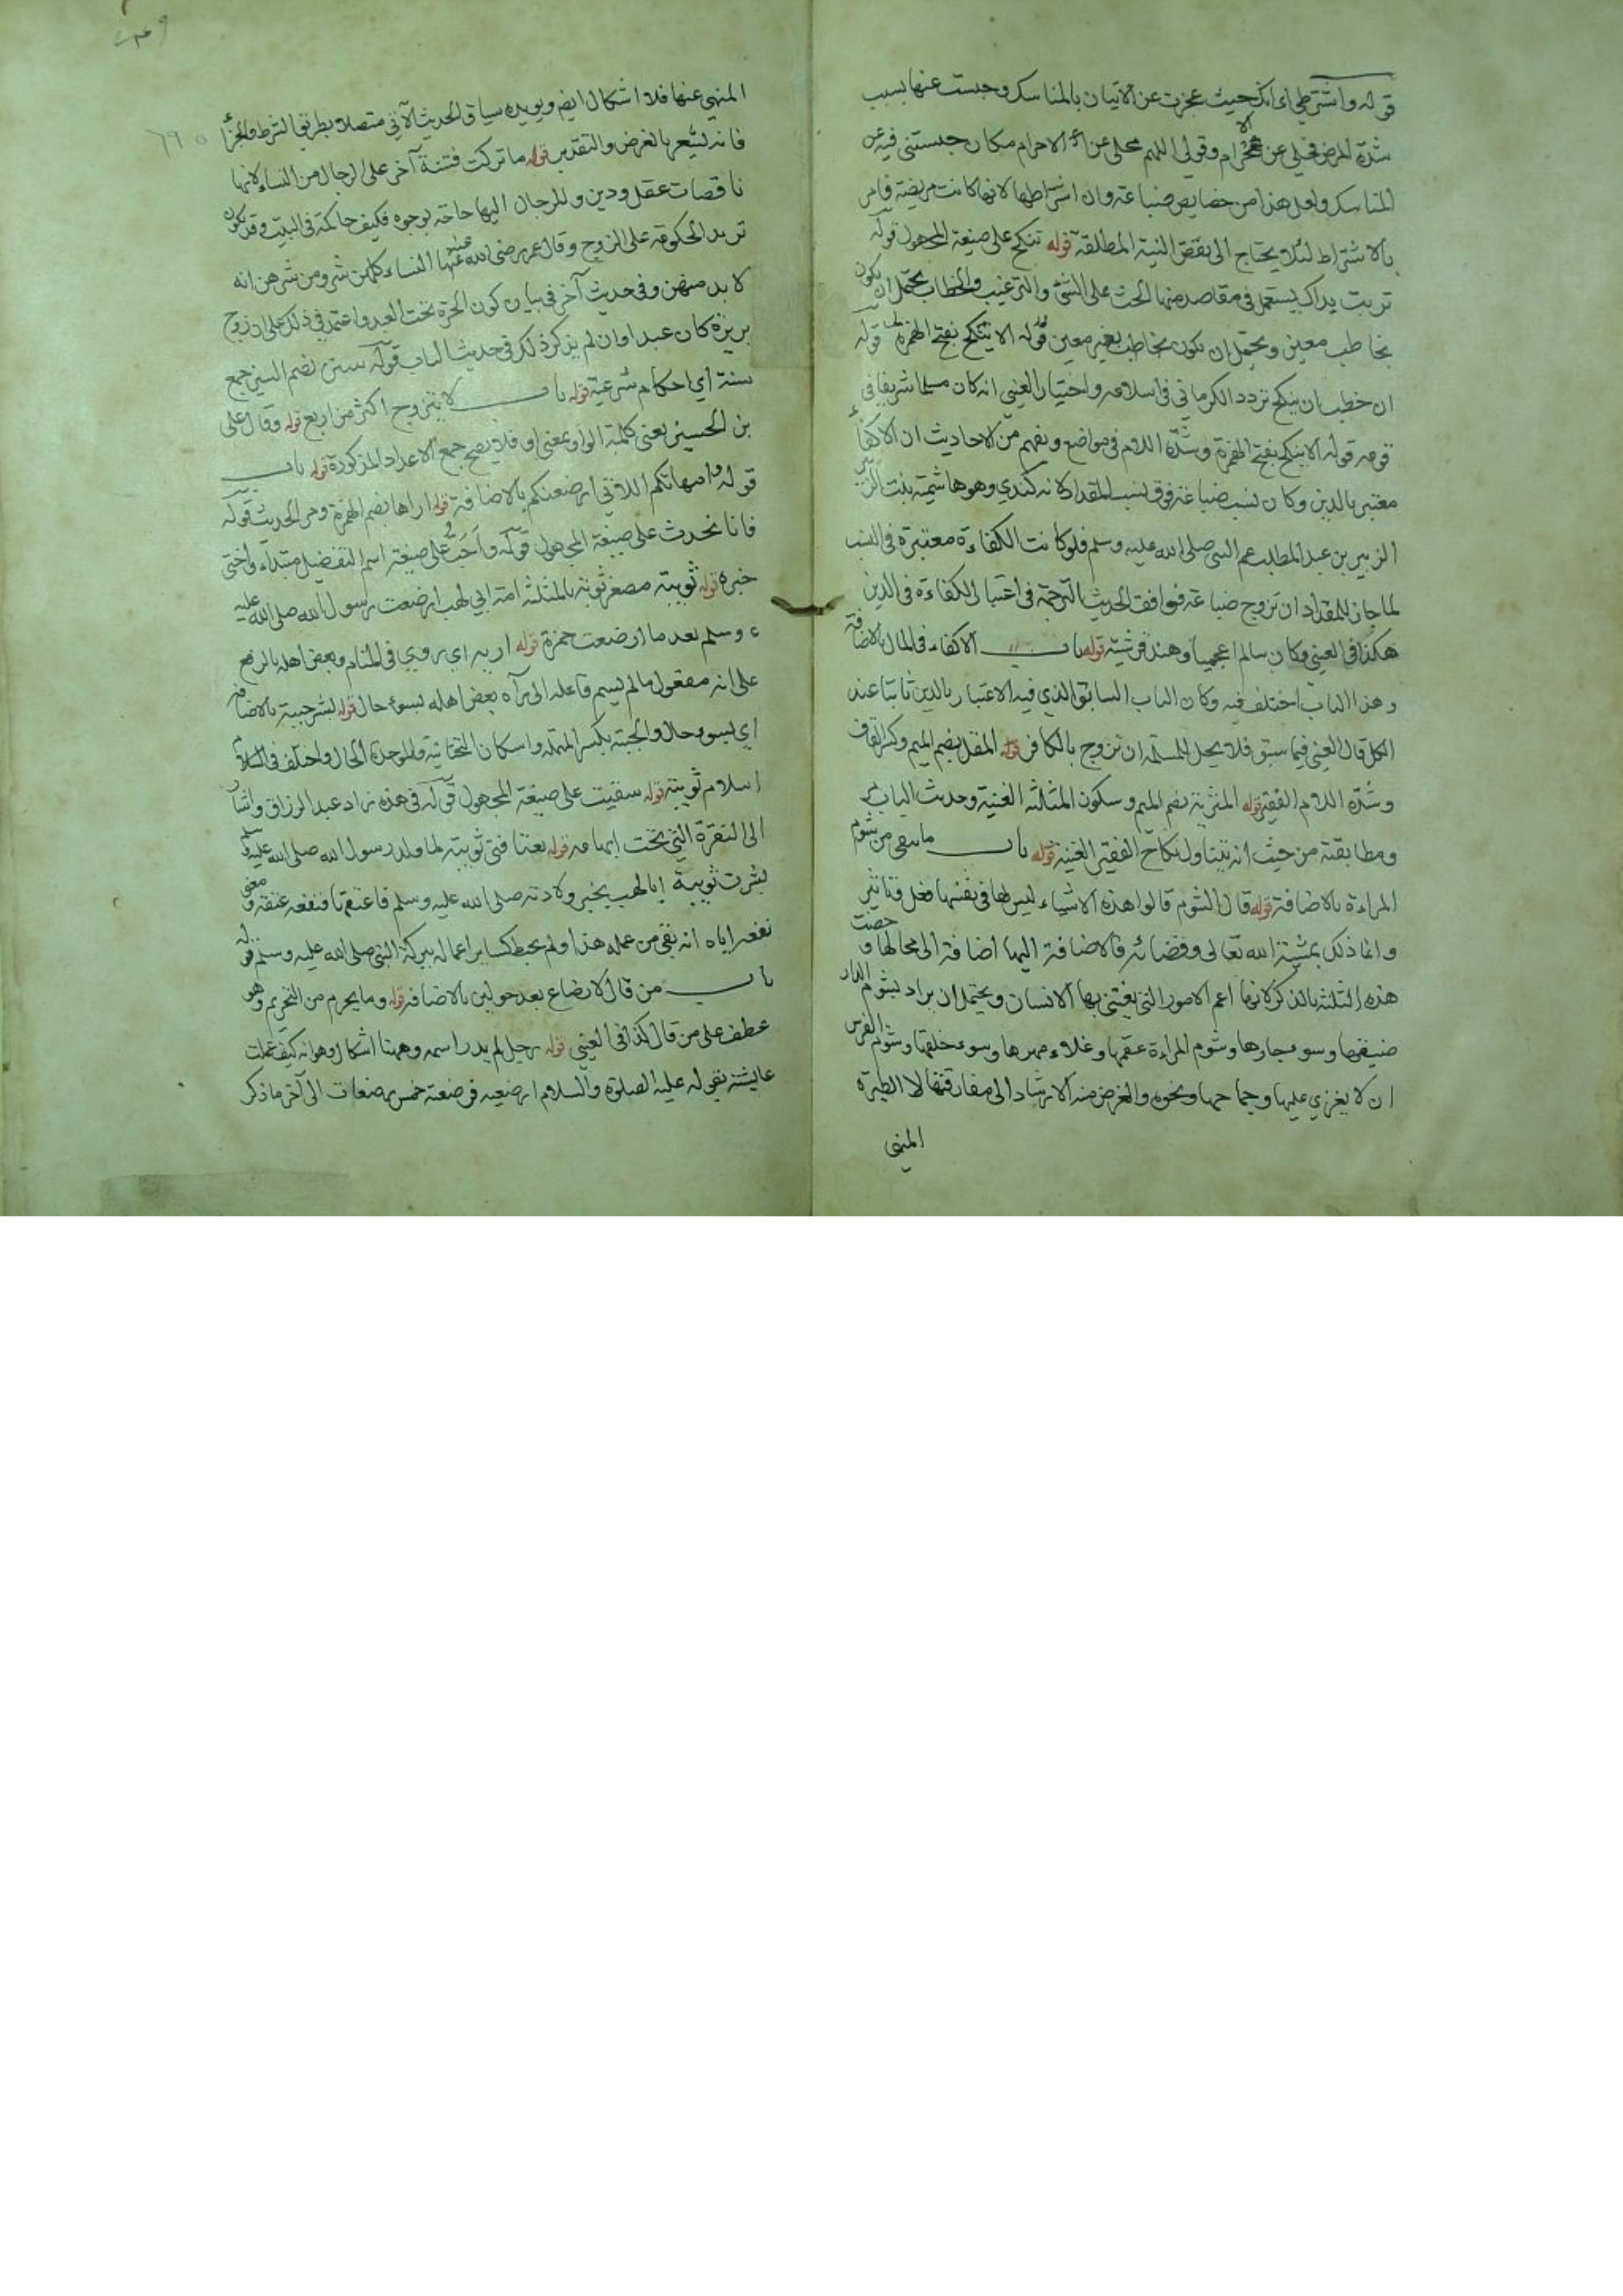 قوله واشترطي اي انك حيث عجزت عن الاتيان بالمناسك وحبست عنها بسبب
شدة المرض فحلي عن الاحرام وقولي اللهم محلي عن الاحرام مكان حبستني فيه عن
المناسك ولعل هذا من خصايص ضباعة وان اشراطها لانها كانت مريضة فامر
بالاشتراط لئلا يحتاج الى نقض النية المطلقة قوله تنكح على صيغة المجهول قوله
تربت يداك يستعمل في مقاصد منها الحث على الشئ والترغيب والخطاب يحتمل ان يكون
بخاطب معين ويحتمل ان يكون بخاطب بغير معين قوله الا ينكح بفتح الهمزة قوله
ان خطب ان ينكح تردد الكرماني في اسلامه واختيار العيني انه كان مسلما شريفا في
قومه قوله الا ينكح بفتح الهمزة وشدة اللام في مواضع ويفهم من الاحاديث ان الاكفاء
معتبر بالدين وكان نسب ضباعة فوق نسب المقداد لانه كندي وهو هاشمية بنت الزبير
الزبير بن عبد المطلب عم النبي صلى الله عليه وسلم فلو كانت الكفاءة معتبرة في النسب
لما جاز للمقداد ان تزوج ضباعة فوافق الحديث الترجمة في اعتبار الكفاءة في الدين
هكذا في العيني وكان سالم اعجميا وهند قرشية قوله باب الاكفاء في المال بالاضافة
وهذا الباب اختلف فيه وكان الباب السابق الذي فيه الاعتبار بالدين ثابتا عند
الكل قال العيني فيما سبق فلا يحل للمسلمة ان تزوج بالكافر قوله المقل بضم الميم وكسر القاف
وشدة اللام الفقير قوله المثرية بضم الميم وسكون المثلثة الغنية وحديث الباب مر
ومطابقته من حيث انه يتناول نكاح الفقير الغنية قوله باب ما يتقى من شوم
المراءة بالاضافة قوله قال الشوم قالوا هذه الاشياء ليس لها في نفسها فعل وتاثير
وانما ذلك بمشية الله تعالى وقضائه فالاضافة اليها اضافة الى محالها وخصت
هذه الثلثة بالذكر لانها اعم الامور التي يقتني بها الانسان ويحتمل ان يراد بشوم الدار
ضيقها وسوء جارها وشوم المراءة عقمها وغلاء مهرها وسوء خلقها وشوم الفرس
ان لا يغزي عليها وجماحها ونحوه والغرض منه الارشاد الى مفارقتها لا الطيرة
المنهي
المنهي عنها فلا اشكال ايضم ويويده سياق الحديث الآتي متصلا بطريق الشرط والجزاء
فانه يشعر بالفرض والتقدير قوله ما تركت فتنة آخر على الرجال من النساء لانها
ناقصات عقل ودين وللرجال اليها حاجة بوجوه فكيف حاكمة في البيت وقد يكون
تريد الحكومة على الزوج وقال عمر رضي الله عنه النساء كلهن شر ومن شرهن انه
لا بد منهن وفي حديث آخر في بيان كون الحرة تحت العبد واعتمد في ذلك على ان زوج
بريرة كان عبدا وان لم يذكر ذلك في حديث الباب قوله سنن بضم السين جمع
سنة اي احكام شرعية قوله باب لا يتزوج اكثر من اربع قوله وقال علي
بن الحسين يعني كلمة الواو بمعنى او فلا يصح جمع الاعداد المذكورة قوله باب
قوله وامهاتكم اللاتي ارضعنكم بالاضافة قوله اراها بضم الهمزة ومر الحديث قوله
فانا نحدث على صيغة المجهول قوله واحب على صيغة اسم التفضيل مبتداء واختي
خبره قوله ثويبة مصغر ثوبة بالمثلثة امة ابي لهب ارضعت رسول الله صلى الله عليه
وسلم بعد ما ارضعت حمزة قوله اريه اي روي في المنام وبعض اهله بالرفع
على انه مفعول ما لم يسم فاعله اي رآه بعض اهله بسوء حال قوله بشر حيبة بالاضافة
اي بسوء حال والحيبة بكسر المهملة واسكان التحتانية والموحدة الحال واختلف في اسلام
اسلام ثويبة قوله سقيت على صيغة المجهول قوله في هذه زاد عبد الرزاق واشار
الى النقرة التي تحت ابهامه قوله بعتاقتي ثويبة لما ولد رسول الله صلى الله عليه وسلم
بشرت ثويبة ابا لهب بخبر ولادته صلى الله عليه وسلم فاعتقها فنفعه عتقه ومعنى
نفعه اياه انه بقي من عمله هذا ولم يحبط كساير اعماله ببركة النبي صلى الله عليه وسلم قوله
باب من قال لا رضاع بعد حولين بالاضافة قوله وما يحرم من التحريم وهو
عطف على من قال كذا في العيني قوله رجل لم يدر اسمه وههنا اشكال وهو انه كيف عملت
عايشة بقوله عليه الصلوة والسلام ارضعيه فرضعته خمس رضعات الى آخر ما ذكر